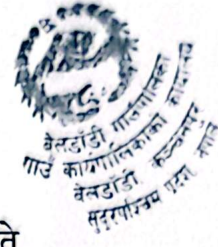 बेलडाँडी गाउँपालिका
गाउँ कार्यपालिकाको कार्यालय
बेलडाँडी, कञ्चनपुर
सुदूरपश्चिम प्रदेश, नेपाल
ते